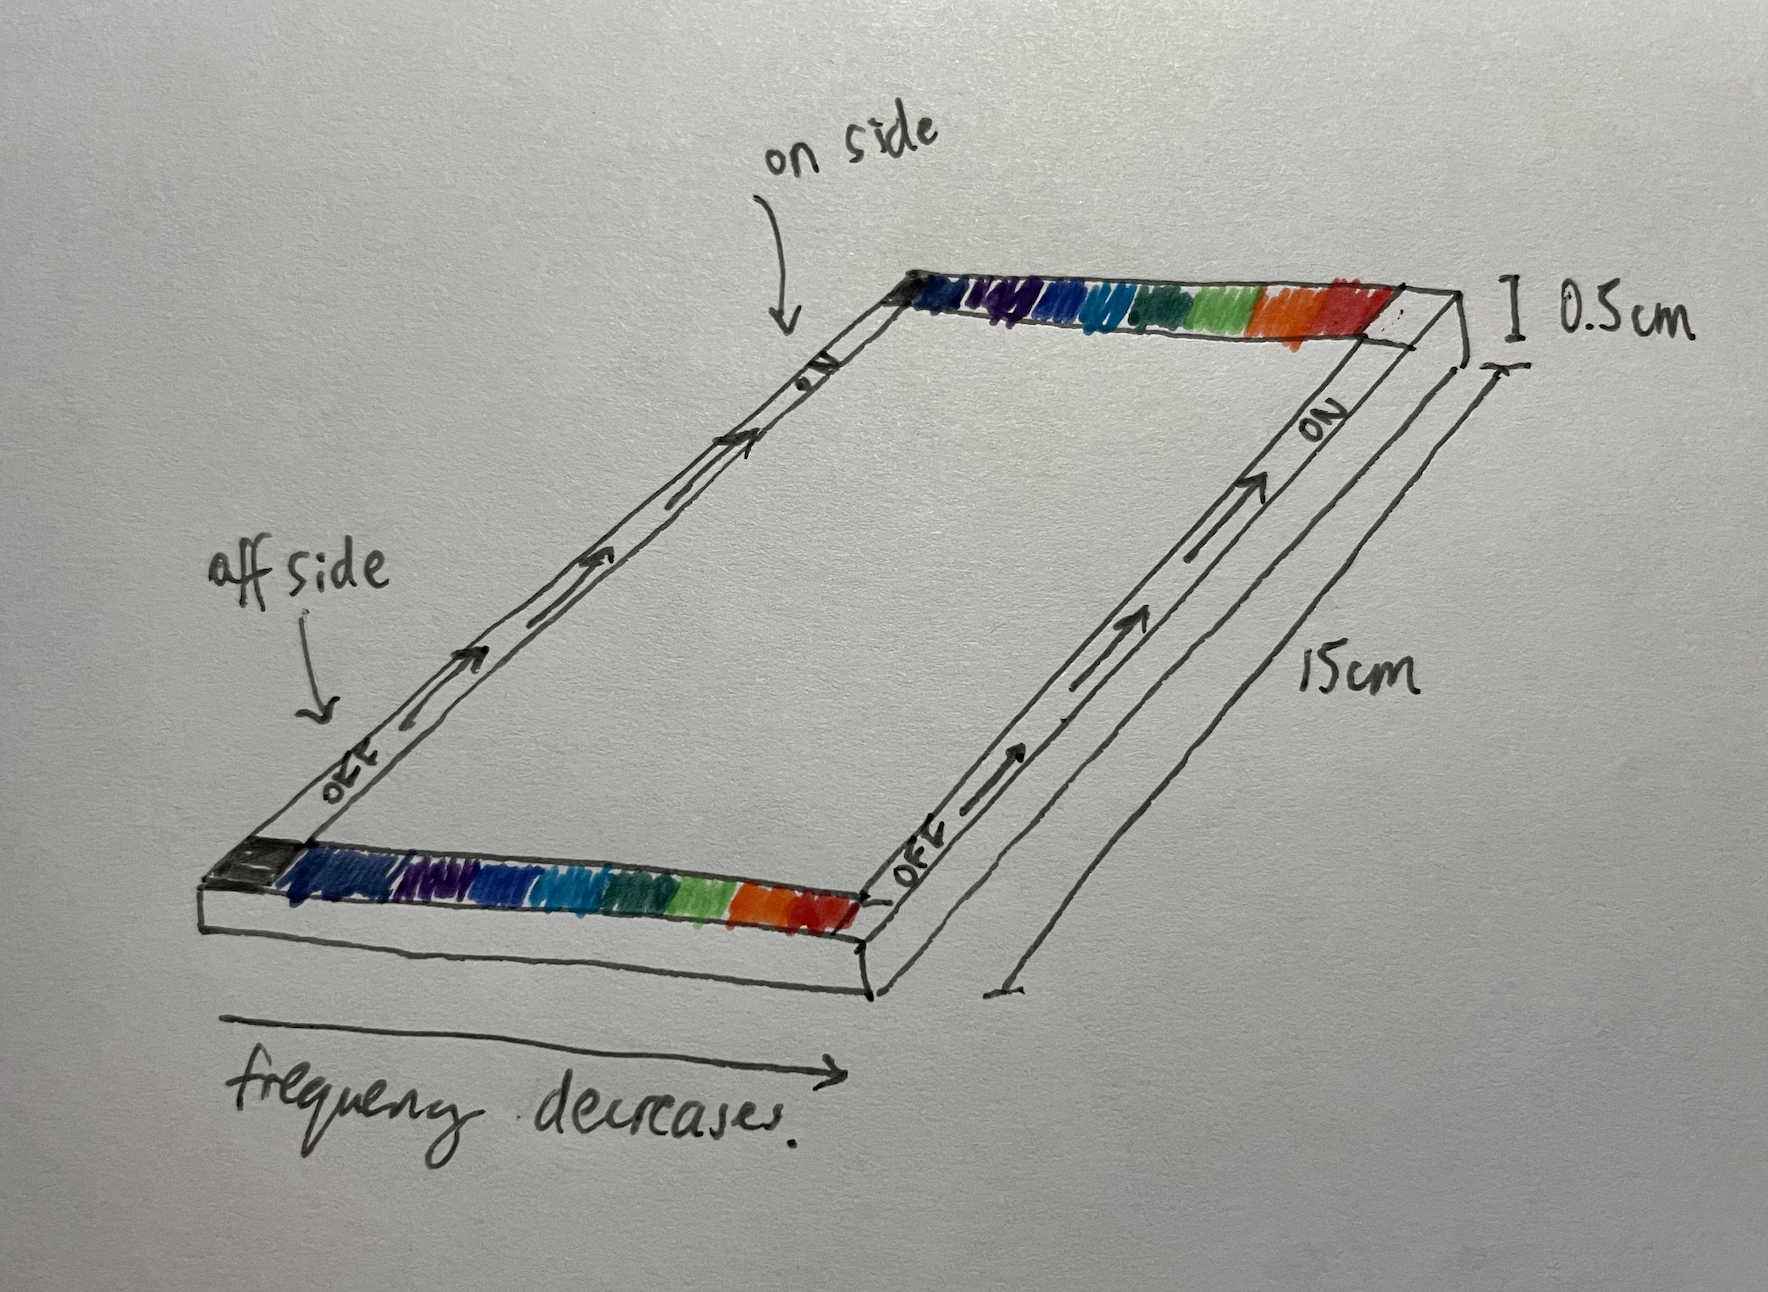 on side
0.5cm
ON
ON
off side
15cm
OFF
OFF
frequency decreases.